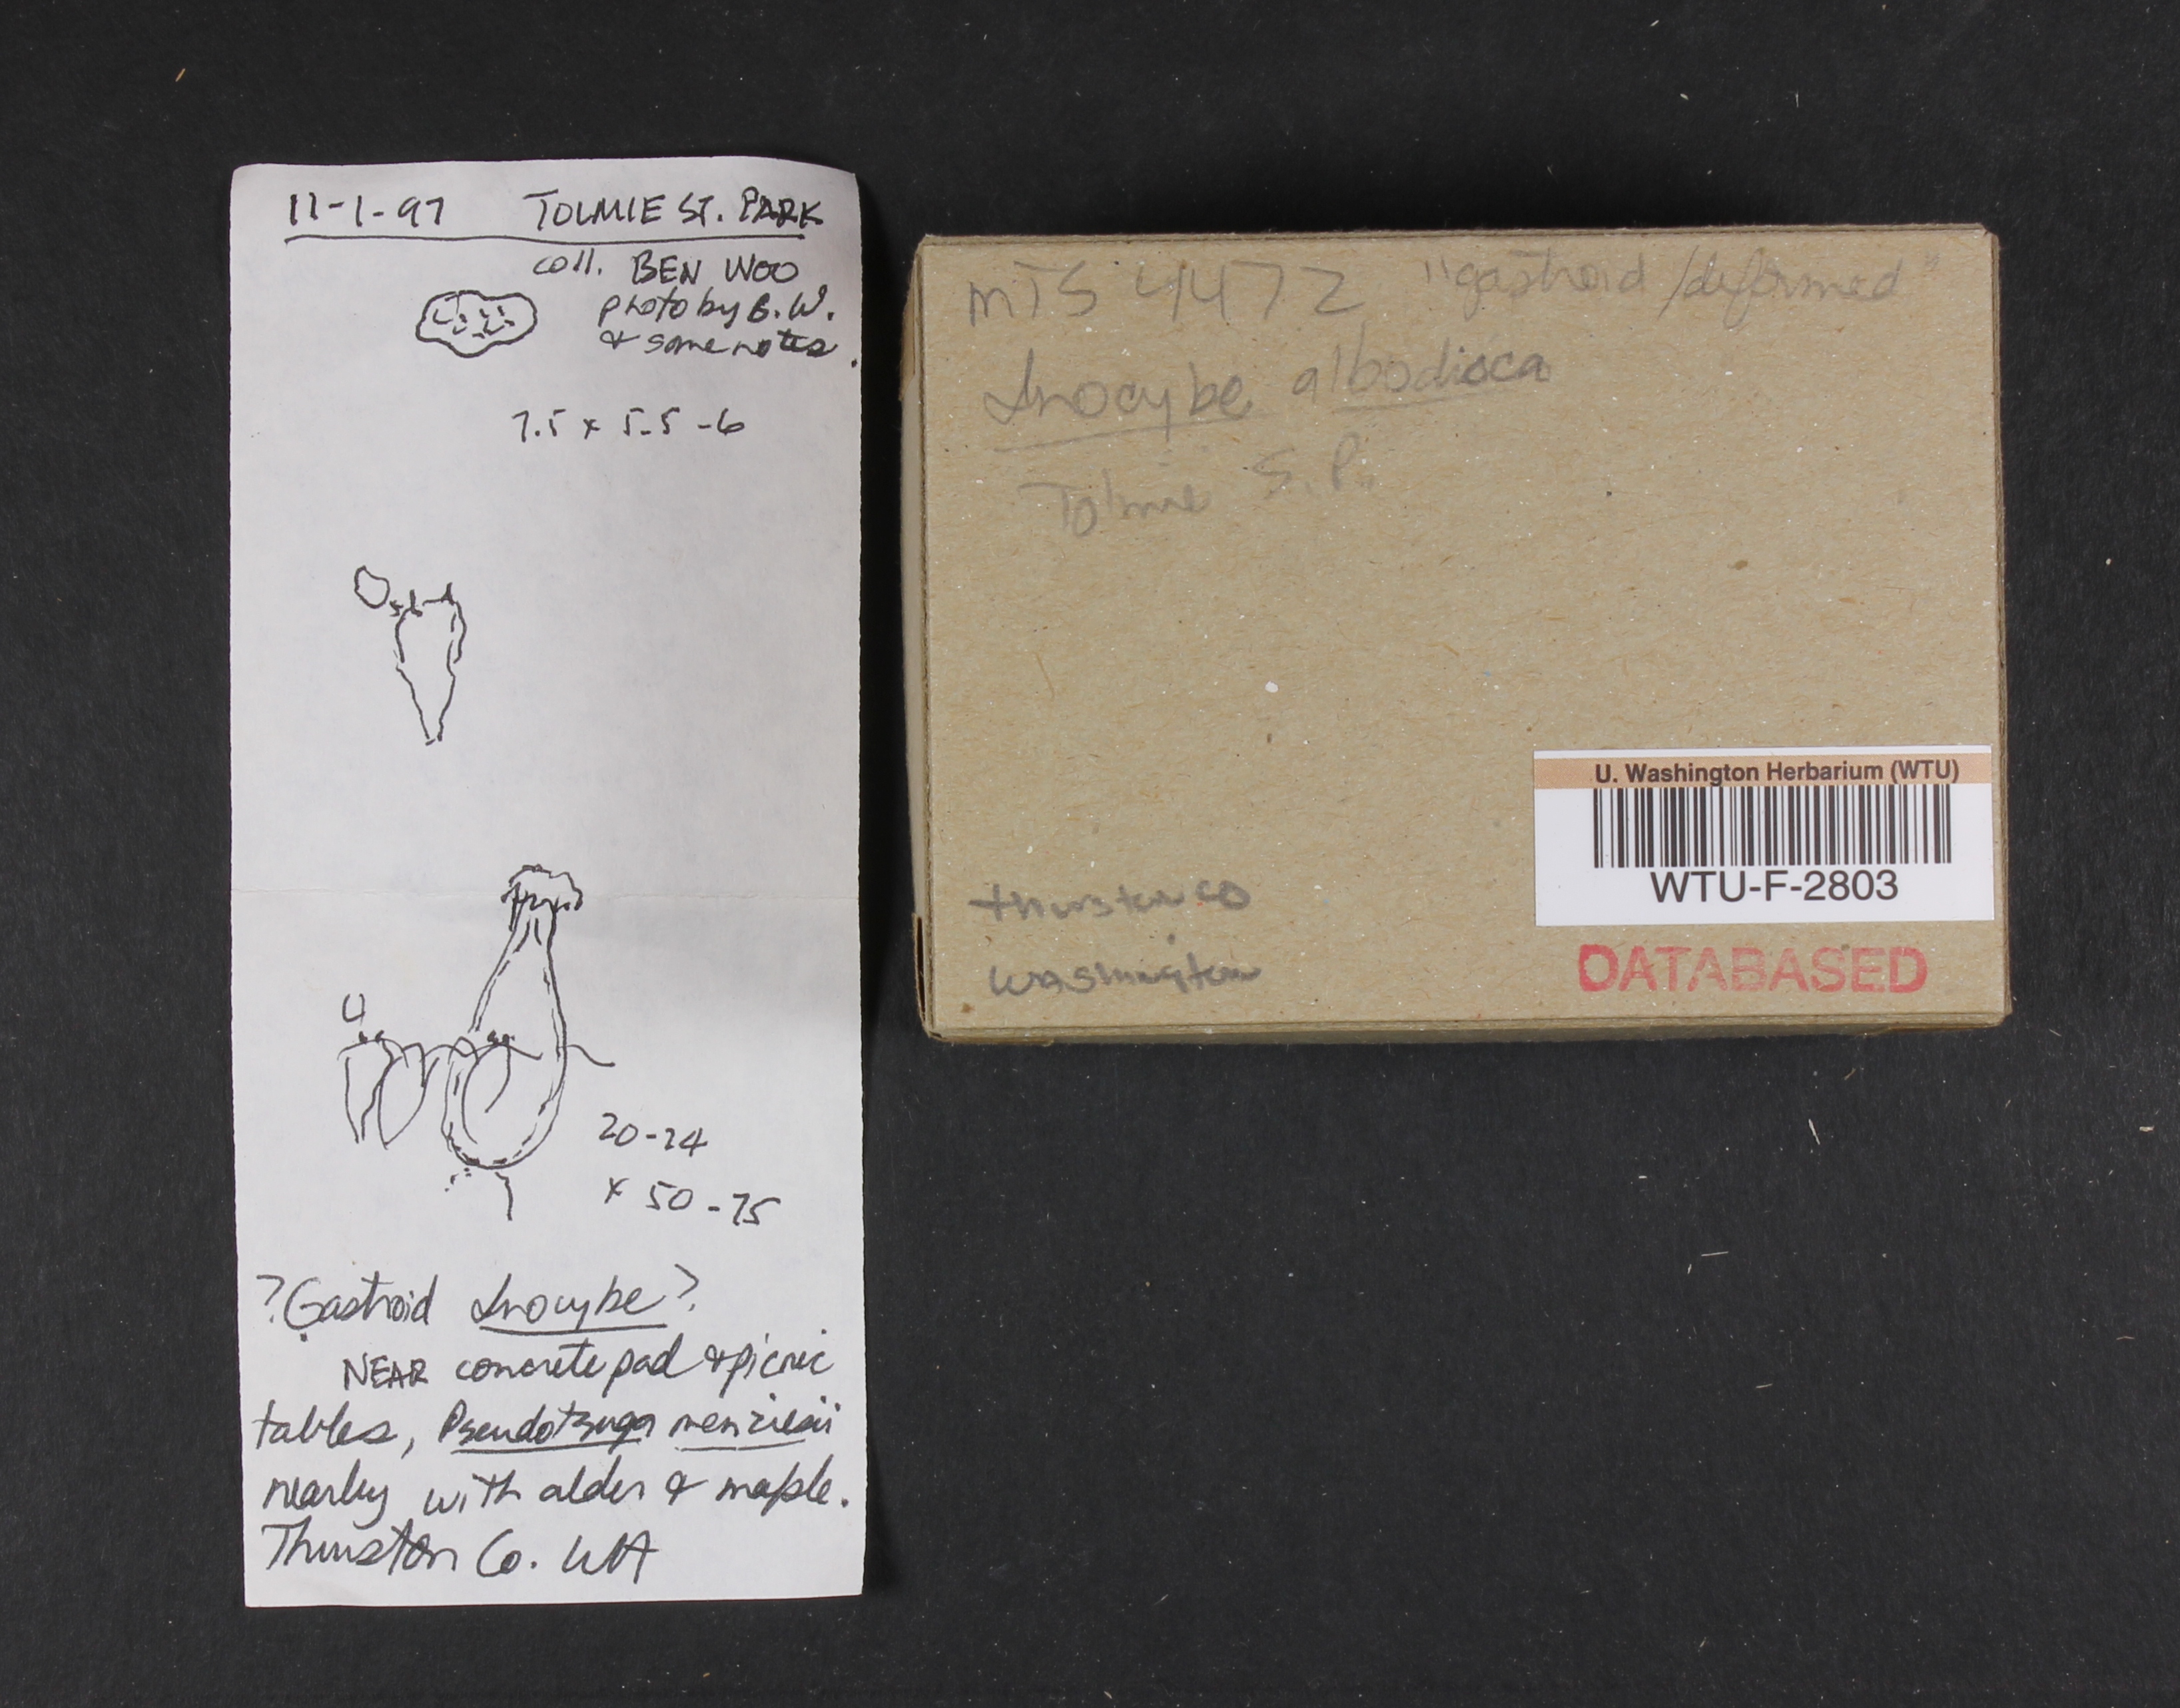 11-1-97 TOLMIE ST. PARK
coll. BEN WOO
photo by B.W.
& some notes.
7.5 x 5.5-6
20-24
x 50-75
?Gastroid Inocybe?
NEAR concrete pad & picnic
tables, Pseudotsuga menziesii
nearby with alder & maple.
Thurston Co. WA
MTS 4472 "gastroid/deformed"
Inocybe albodisca
Tolmie S.P.
Thurston Co
Washington
U. Washington Herbarium (WTU)
WTU-F-2803
DATABASED